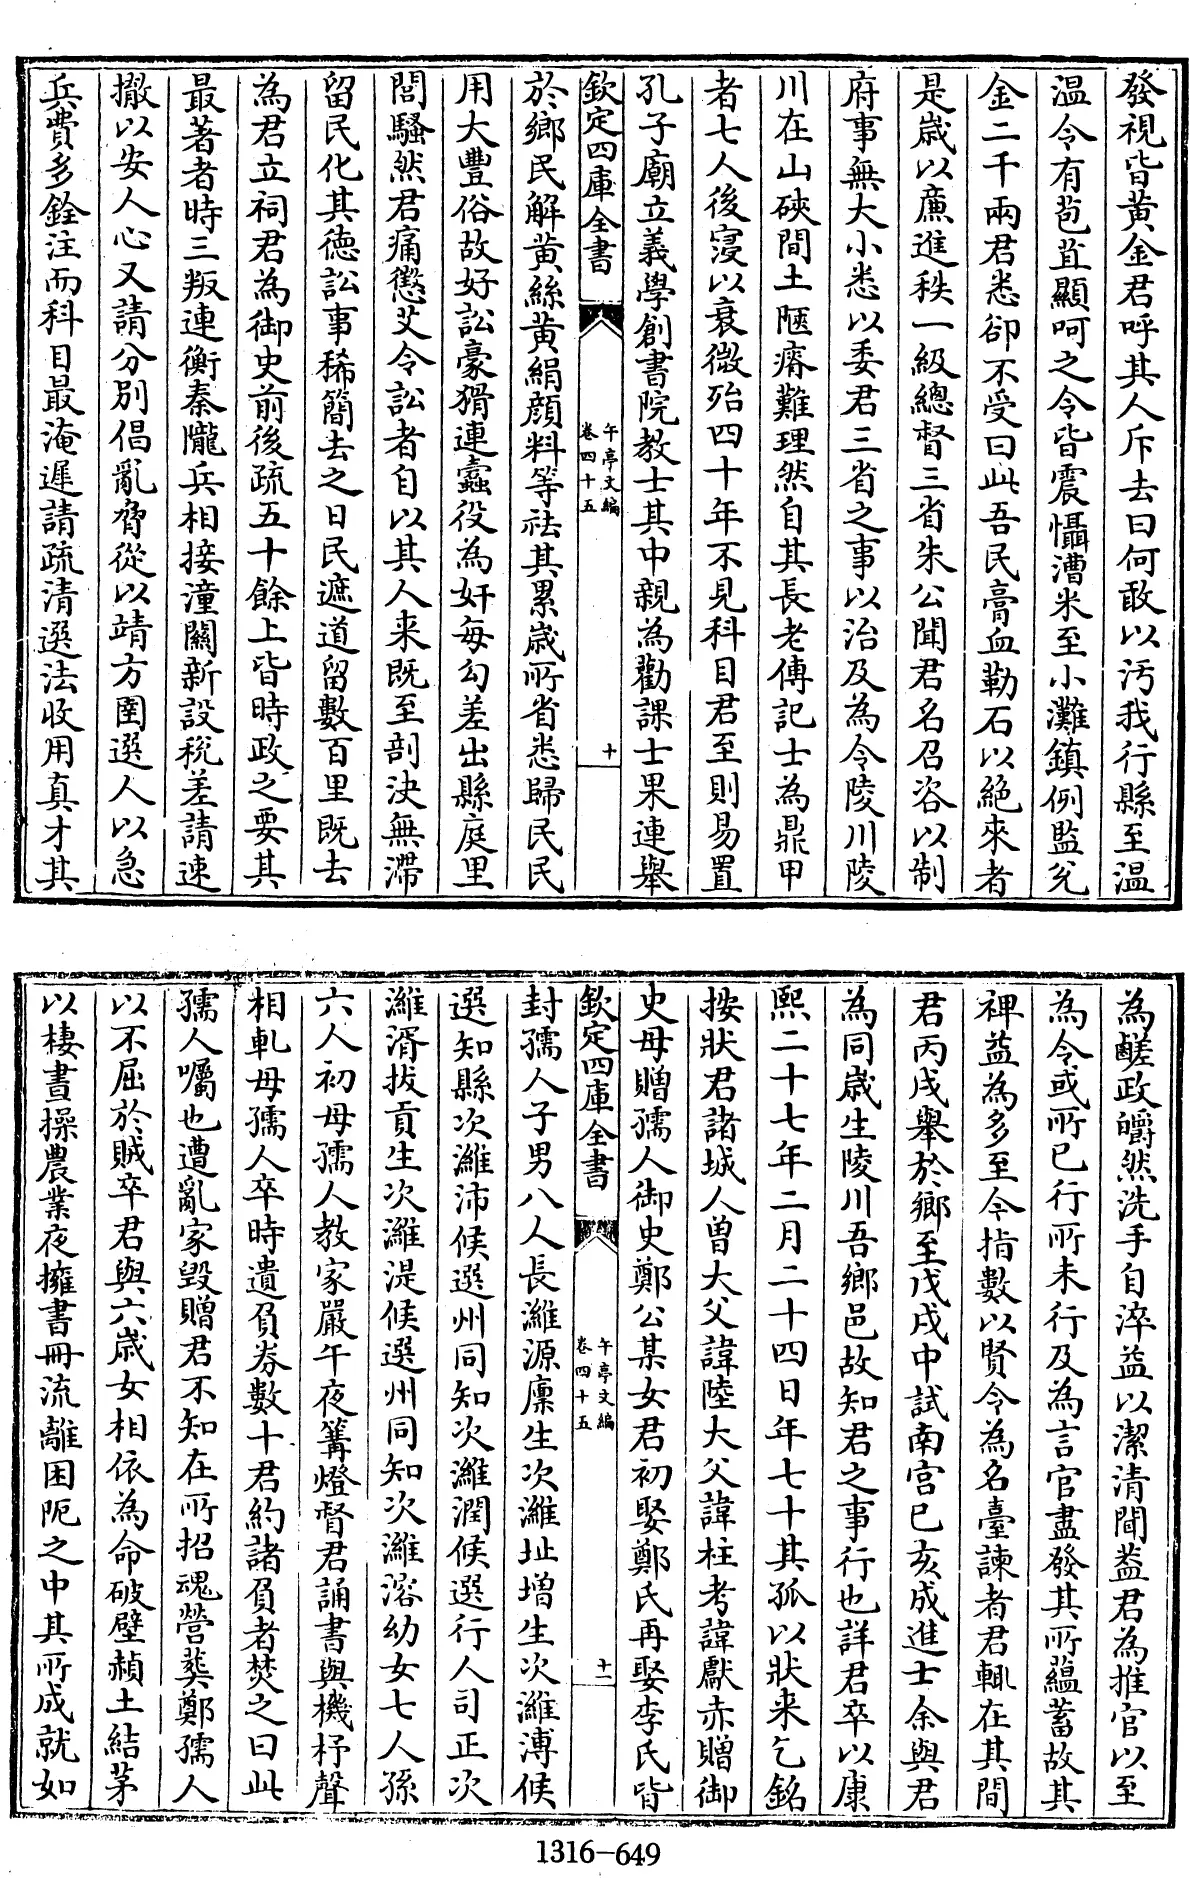 發視皆黄金君呼其人斥去曰何敢以汚我行縣至温
温令有苞苴顯呵之令皆震懾漕米至小灘鎮例監兊
金二千兩君悉卻不受曰此吾民膏血勒石以絶來者
是歲以廉進秩一級總督三省朱公聞君名召咨以制
府事無大小悉以委君三省之事以治及為令陵川陵
川在山硤間土陋瘠難理然自其長老傳記士為鼎甲
者七人後寖以衰微殆四十年不見科目君至則易置
孔子廟立義學創書院教士其中親為勸課士果連舉
欽定四庫全書
午亭文編
卷四十五
十
於鄉民解黄絲黄絹顔料等祛其累歲所省悉歸民民
用大豐俗故好訟豪猾連蠹役為奸每勾差出縣庭里
閭騷然君痛懲艾令訟者自以其人来既至剖決無滯
留民化其徳訟事稀簡去之日民遮道留數百里既去
為君立祠君為御史前後疏五十餘上皆時政之要其
最著者時三叛連衡秦隴兵相接潼關新設稅差請速
撤以安人心又請分别倡亂脅從以靖方圉選人以急
兵費多銓注而科目最淹遲請疏清選法收用真才其
為鹺政皭然洗手自淬益以潔清聞葢君為推官以至
為令或所已行所未行及為言官盡發其所藴蓄故其
裨益為多至今指數以賢令為名臺諫者君輒在其間
君丙戌舉於鄉至戊戌中試南宫已亥成進士余與君
為同歲生陵川吾鄉邑故知君之事行也詳君卒以康
熙二十七年二月二十四日年七十其孤以狀来乞銘
按狀君諸城人曾大父諱陸大父諱柱考諱獻赤贈御
史母贈孺人御史鄭公某女君初娶鄭氏再娶李氏皆
欽定四庫全書
午亭文編
卷四十五
十一
封孺人子男八人長濰源廪生次濰址增生次濰溥候
選知縣次濰沛候選州同知次濰潤候選行人司正次
濰湑拔貢生次濰湜候選州同知次濰溶幼女七人孫
六人初母孺人教家嚴午夜篝燈督君誦書與機杼聲
相軋母孺人卒時遺負劵數十君約諸負者焚之曰此
孺人囑也遭亂家毀贈君不知在所招魂營葬鄭孺人
以不屈於賊卒君與六歲女相依為命破壁頳土結茅
以棲晝操農業夜擁書冊流離困阨之中其所成就如
1316-649